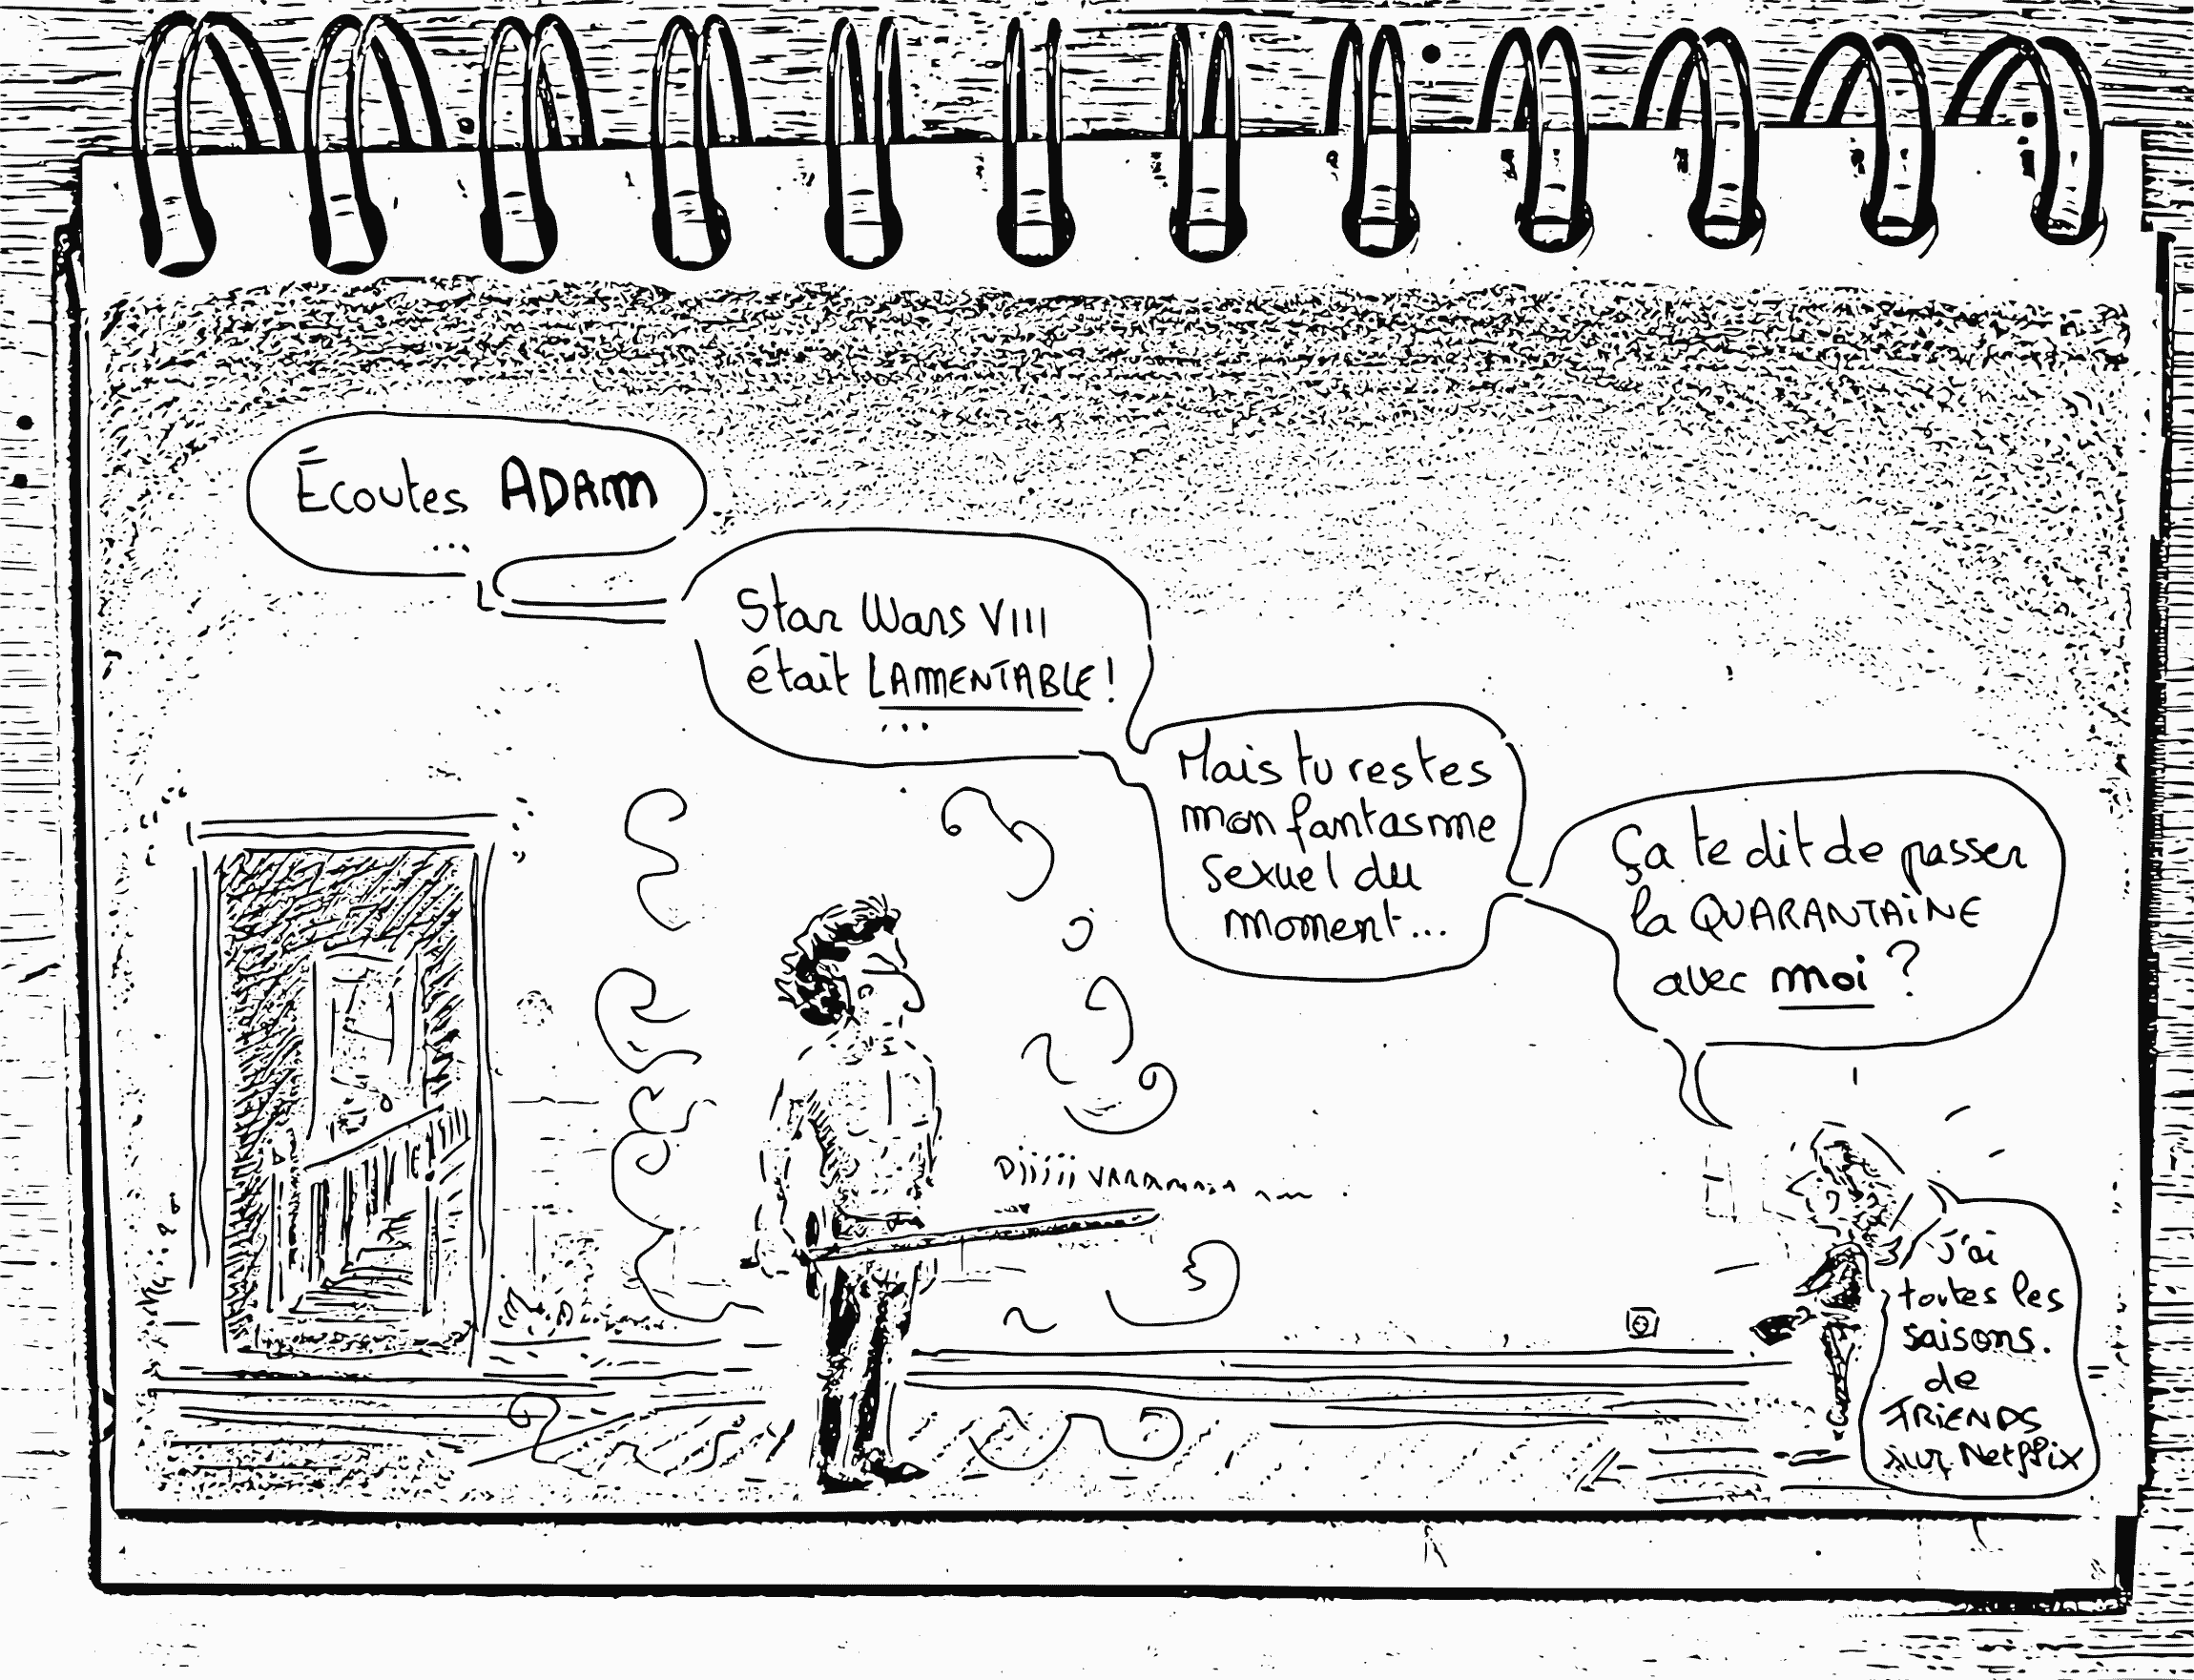 Écoutes ADAM
...
Star Wars VIII
était LAMENTABLE !
...
Mais tu restes
mon fantasme
sexuel du
moment...
Ça te dit de passer
la QUARANTAiNE
avec moi ?
J'ai
toutes les
saisons.
de
FRiENDS
sur Netflix